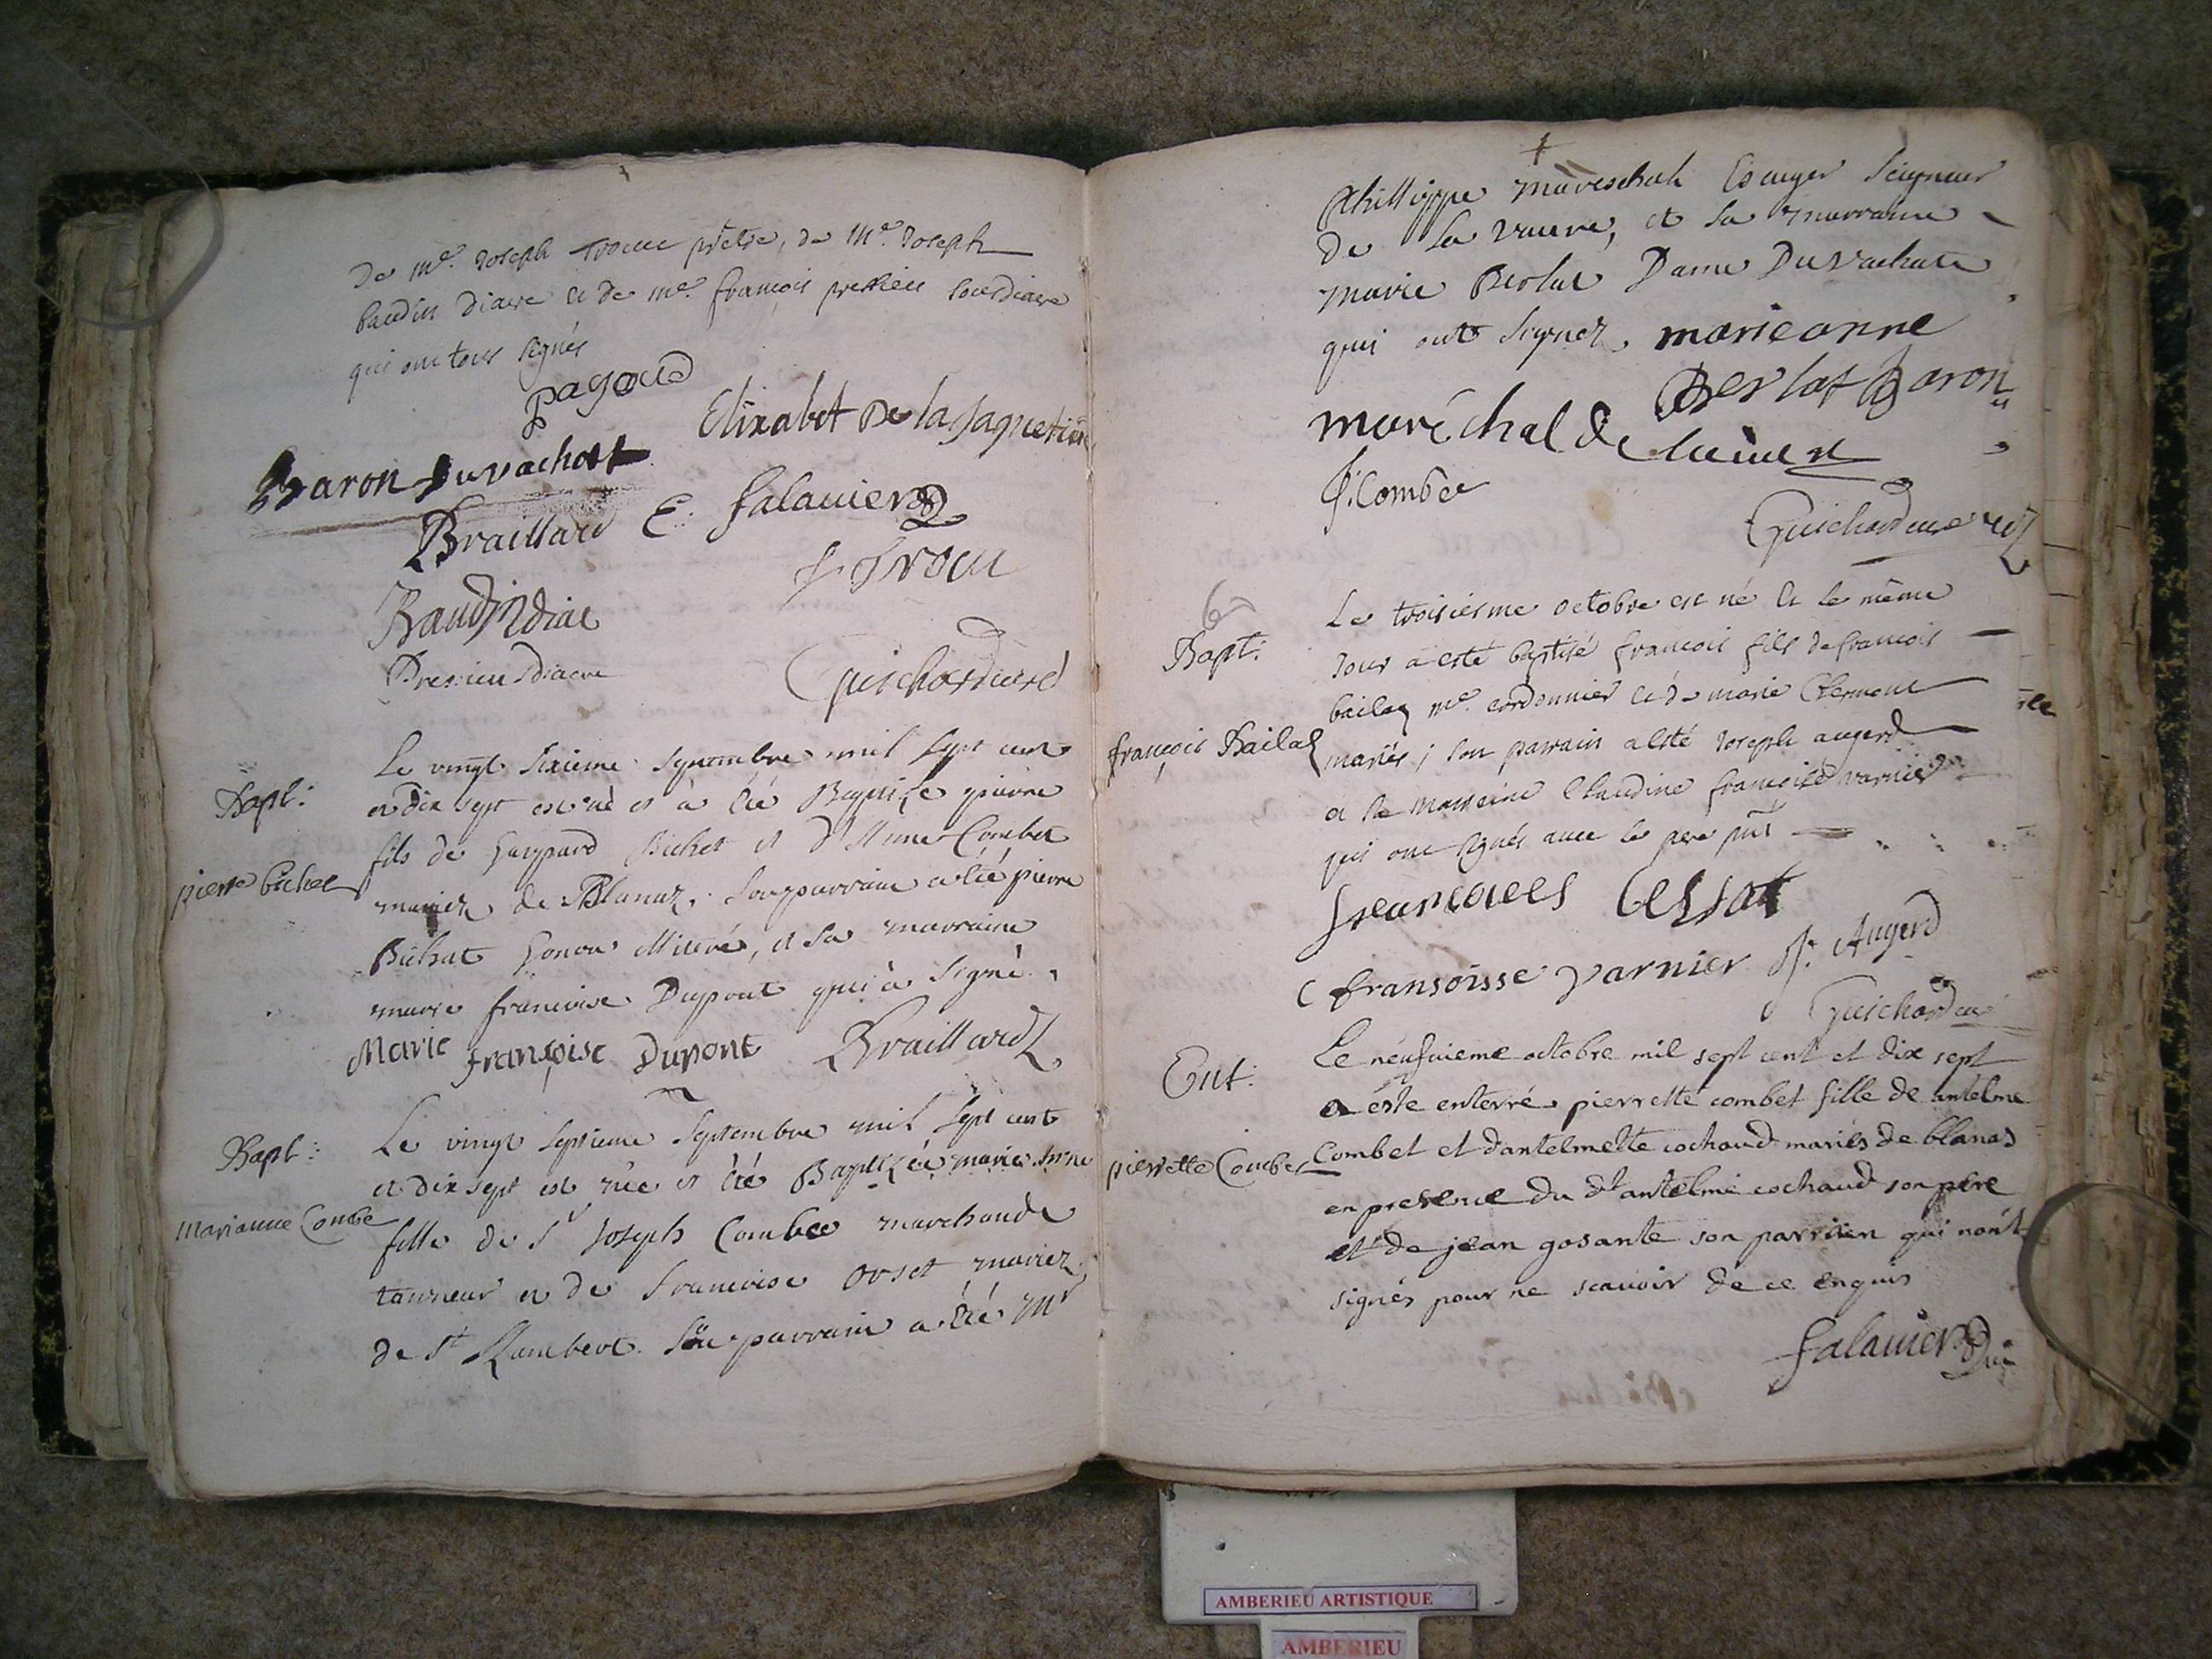 De me. Joseph Trocu prêtre, de Me. Joseph
baudin diacre et de me. françois premieu sousdiacre
qui ont tous signés
pagoud
Elixabet De la Jaquetiere
Baron Duvachat
Braillard C. falavier
J. Trocu
Baudin diac
Premieu sdiacre
Guichard curé
Bapt:
pierre bichet
Le vingt sixieme septembre mil sept cent
et dix sept est né et a été Baptisé pierre
fils de Gaspard Bichet et d'Anne Combet
mariez de Blanaz, son parrain a été pierre
Bichat illiteré, et sa marraine
marie francoise Dupont qui a signé
Marie françoise Dupont Braillard
Bapt:
Marianne Combe
Le vingt septieme Septembre mil sept cent
et dix sept est née et été Baptizée marie Anne
fille de Sr Joseph Combe marchand
tanneur et de francoise orset mariez
de St Rambert. Son parrain a été Mr
Phillippe mareschal Escuyer Seigneur
De la vavre, et sa marraine
marie Berlat Dame Duvachat
qui ont signez marieanne
Berlat Baron
maréchal de
J. Combe
Guichard curé
6
Bapt:
françois Bailas
Le troisiesme octobre est né et le même
jour a esté baptisé francois fils de francois
bailaz me. cordonnier et de marie Clermont
mariés; son parrain a esté Joseph augerd
et sa marreine Claudine francoise varnier
qui ont signés avec le pere pnt
fransoisse varnier J. Augerd
Guichard curé
Ent:
pierrette Combet
Le neufvieme octobre mil sept cent et dix sept
a este enterré pierrette combet fille de antelme
Combet et dantelmette cochaud mariés de blanas
en presence du dt antelme cochaud son pere
et de jean gosante son parrien qui nont
signés pour ne scavoir de ce enquis
falavier
AMBERIEU ARTISTIQUE
AMBERIEU